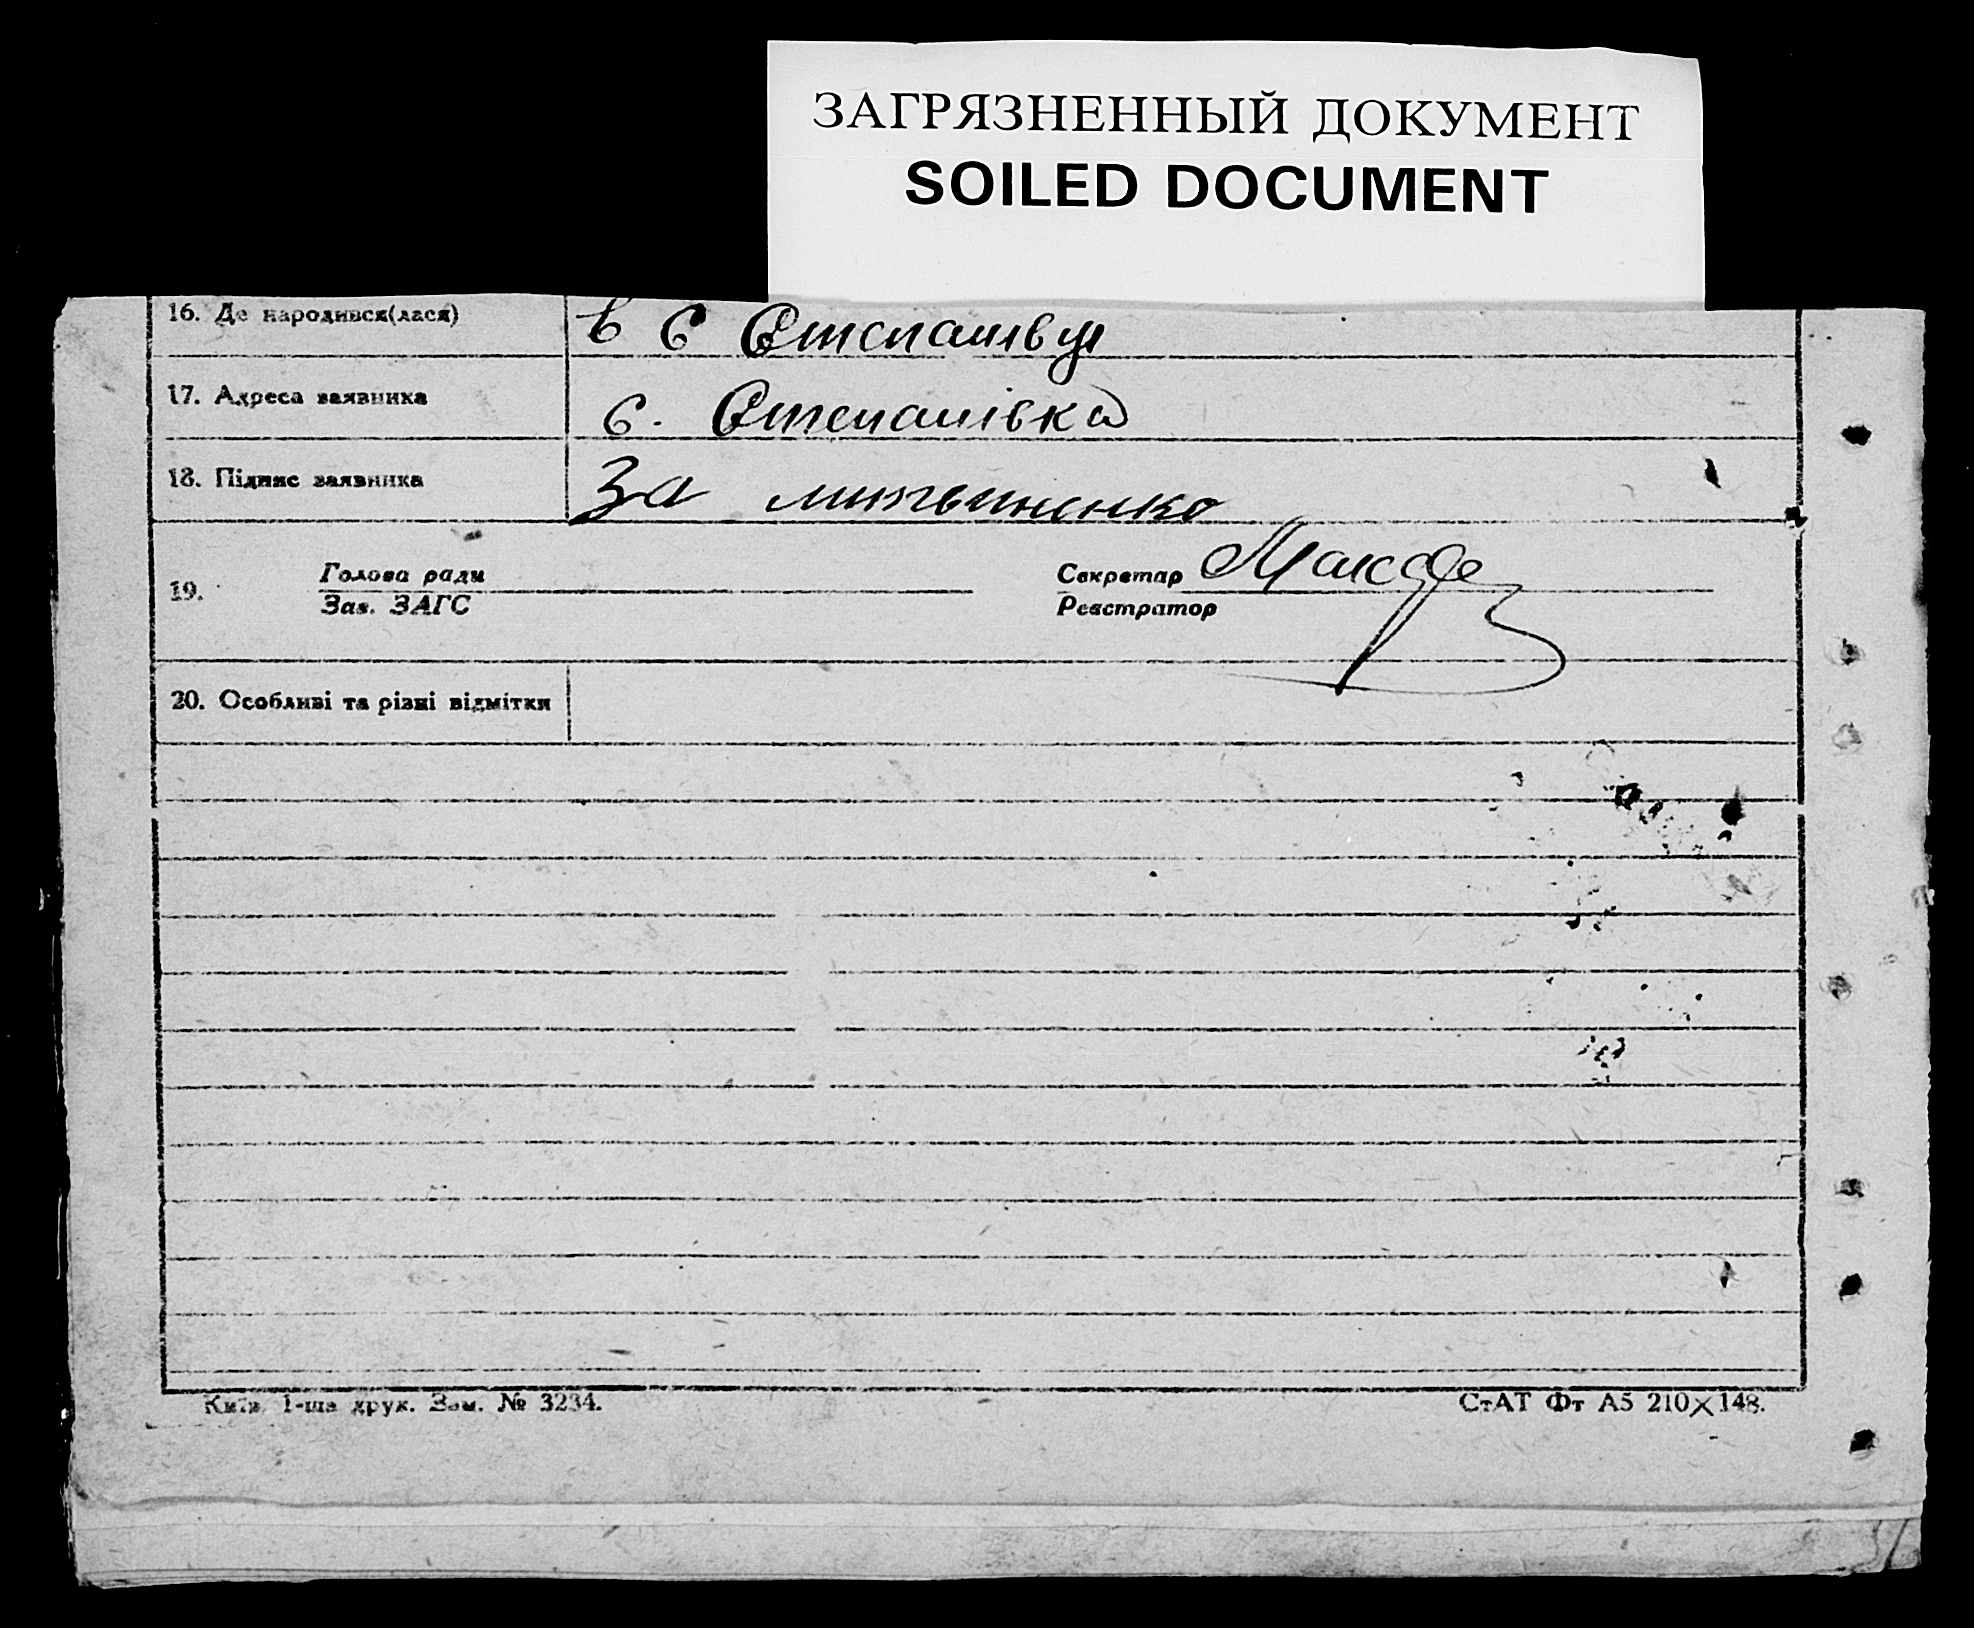 ЗАГРЯЗНЕННЫЙ ДОКУМЕНТ
SOILED DOCUMENT
16. Де народився(лася) в с Степанівці
17. Адреса заявника с. Степанівка
18. Підпис заявника За Литвиненко
19. Голова ради Секретар
Зав. ЗАГС Реєстратор
20. Особливі та різні відмітки
Київ, 1-ша друк. Зам. № 3234. СтАТ Фт А5 210×148.